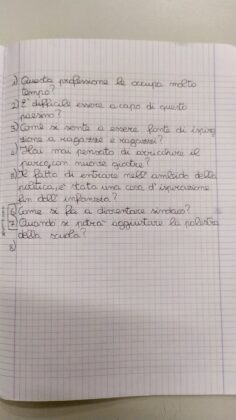 1) Questa professione le occupa molto
tempo?
2) E' difficile essere a capo di questo
paesino?
3) Come si sente a essere fonte di ispira
zione a ragazze e ragazzi?
4) Hai mai pensato di arricchire il
parco, con nuove giostre?
5) Il fatto di entrare nell'ambido della
politica, e' stata una cosa d'ispirazione
fin dall'infanzia?
6) Come si fa a diventare sindaco?
7) Quando si potra' aggiustare la palestra
della scuola?
8)